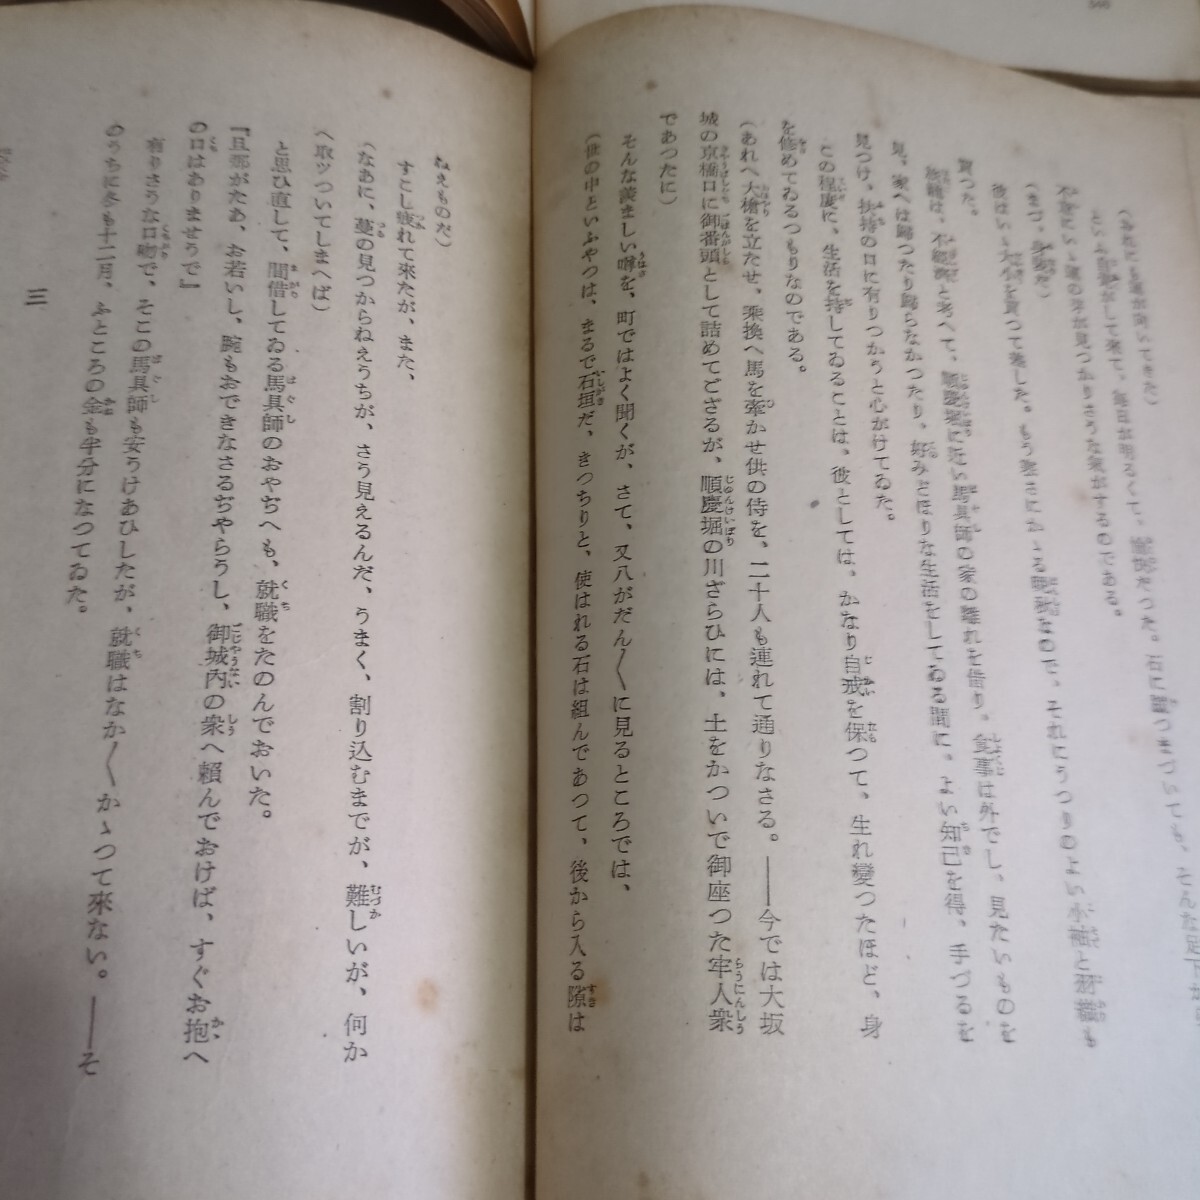 そんな足下サ
(おれにも運が向いてきた)
といふ自覚がして来て、毎日が明るくて、愉快だつた。石に躓づきづいても、
不意にいゝ運の芽が見つかりさうな気がするのである。
(まづ、身装だ)
彼はいゝ大小を買つて差した。もう寒さにかゝる晩秋なので、それにうつりのよい小袖と羽織も
買つた。
旅籠は、不経済と考へて、順慶堀に近い馬具師の家の離れを借り、食事は外でし、見たいものを
見、家へは帰つたり帰らなかつたり、好みどほりな生活をしてゐる間に、よい知己を得、手づるを
見つけ、扶持の口に有りつかうと心がけてゐた。
この程度に、生活を持してゐることは、彼としては、かなり自戒を保つて、生れ變つたほど、身
を修めてゐるつもりなのである。
(あれへ大槍を立たせ、乗換へ馬を牽かせ供の侍を、二十人も連れて通りなさる。――今では大坂
城の京橋口に御番頭として詰めてござるが、順慶堀の川ざらひには、土をかついで御座つた牢人衆
であつたに)
そんな羨ましい噂を、町ではよく聞くが、さて、又八がだん〳〵に見るところでは、
(世の中といふやつは、まるで石垣だ、きつちりと、使はれる石は組んであつて、後から入る隙は
ねえものだ)
すこし疲れて来たが、また、
(なあに、蔓の見つからねえうちが、さう見えるんだ、うまく、割り込むまでが、難しいが、何か
へ取ツついてしまへば)
と思ひ直して、間借してゐる馬具師のおやぢへも、就職をたのんでおいた。
『旦那がたあ、お若いし、腕もおできなさるぢやらうし、御城内の衆へ頼んでおけば、すぐお抱へ
の口はありませうで』
有りさうな口吻で、そこの馬具師も安うけあひしたが、就職はなか〳〵かゝつて來ない。――そ
のうちに冬も十二月、ふところの金も半分になつてゐた。
三